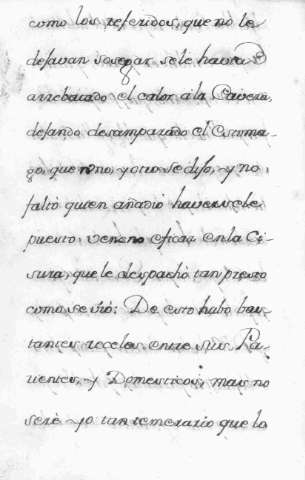 como los referidos, que no le
dejavan sosegar se le havia
arrebatado el calor â la Caveza,
dejando desamparado el Estoma-
go, que uno, y otro se dijo, y no
faltò quien añadió haversele
puesto veneno eficaz en la Ci-
sura, que le despachó tan presto
como se viò: De esto hubo bas-
tantes recelos entre sus Pa-
rientes, y Domesticos, mas no
serè yo tan temerario que lo